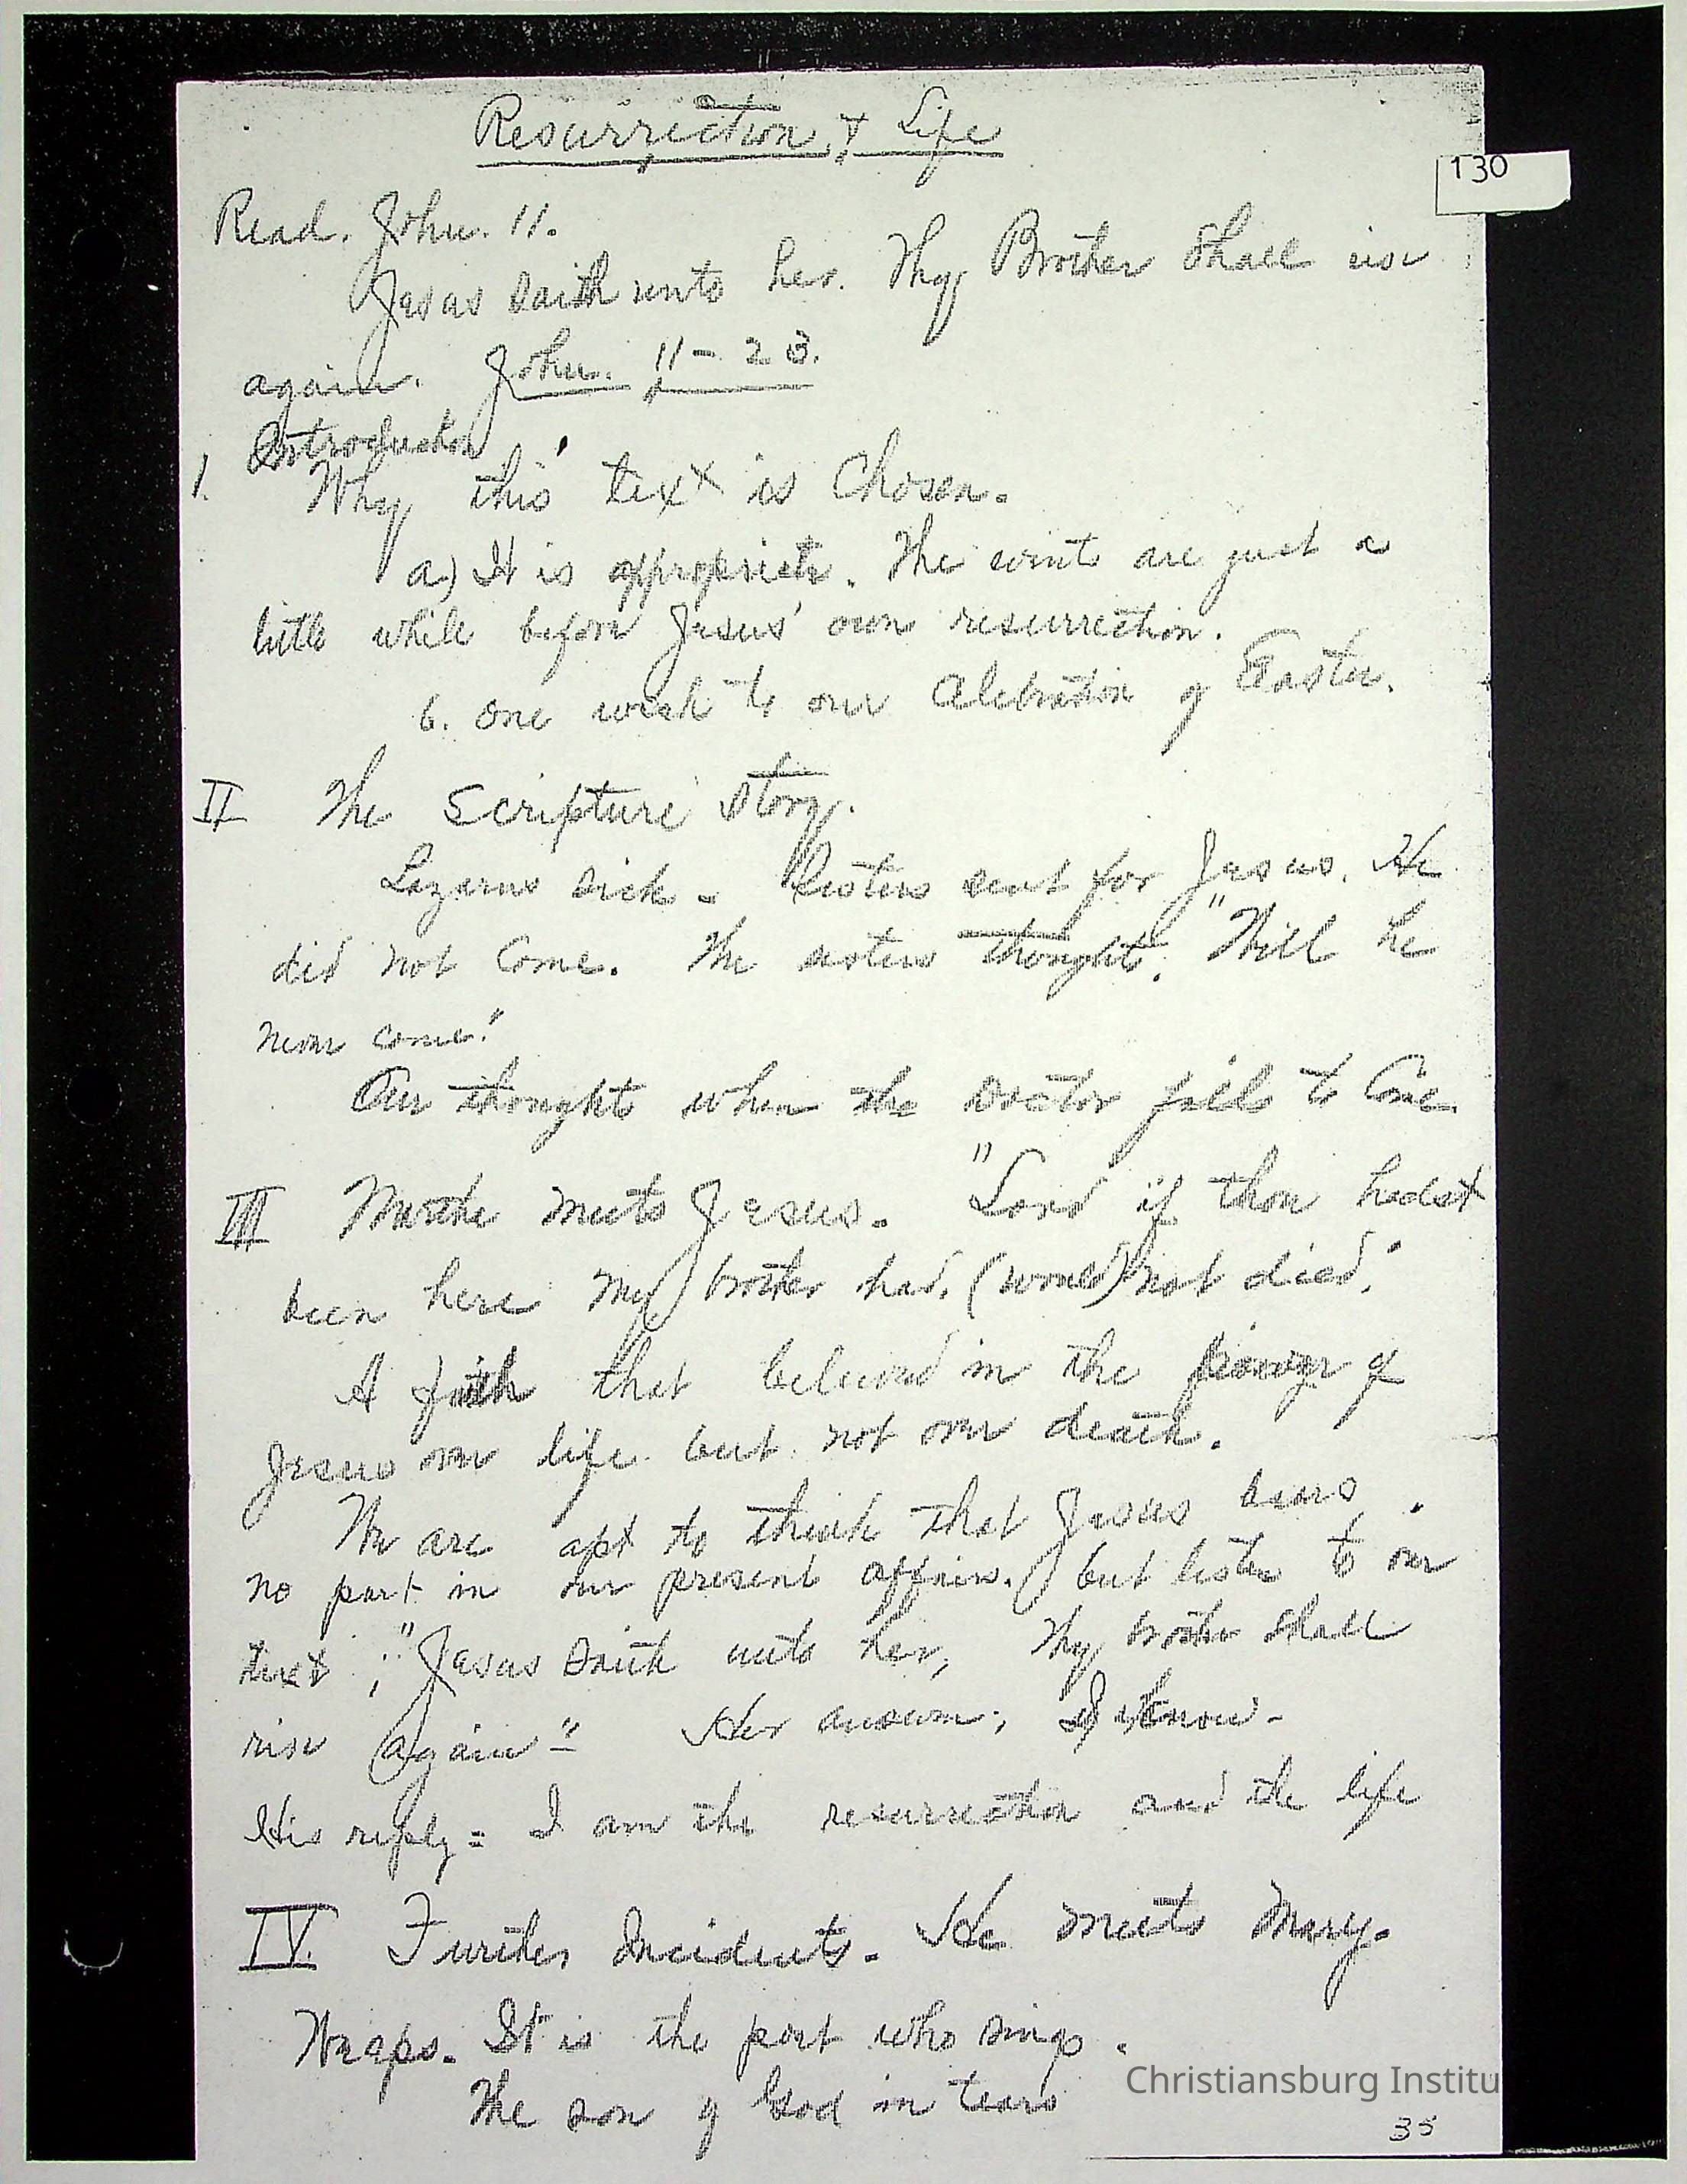 Resurrection & Life
130
Read. John. 11.
Jesus saith unto her. Thy Brother shall rise
again. John. 11-23.
Introduction
1. Why this text is Chosen.
a) It is appropriate. The events are just a
little while before Jesus' own resurrection.
b. one week to our Celebration of Easter.
II The Scripture story.
Lazarus sick - Sisters sent for Jesus. He
did not come. The sisters thought. "Will he
never come."
Our thoughts when the Doctor fails to come.
III Martha meets Jesus. "Lord if thou hadst
been here my brother had, (would) not died."
A faith that believed in the power of
Jesus over life but not over death.
We are apt to think that Jesus bears
no part in our present affairs. but listen to our
text; "Jesus saith unto her, Thy brother shall
rise again" - Her answer; I know -
His reply = I am the resurrection and the life
IV. Further Incidents. He meets Mary.
Weeps. It is the poet who sings.
The son of God in tears
Christiansburg Institu
35